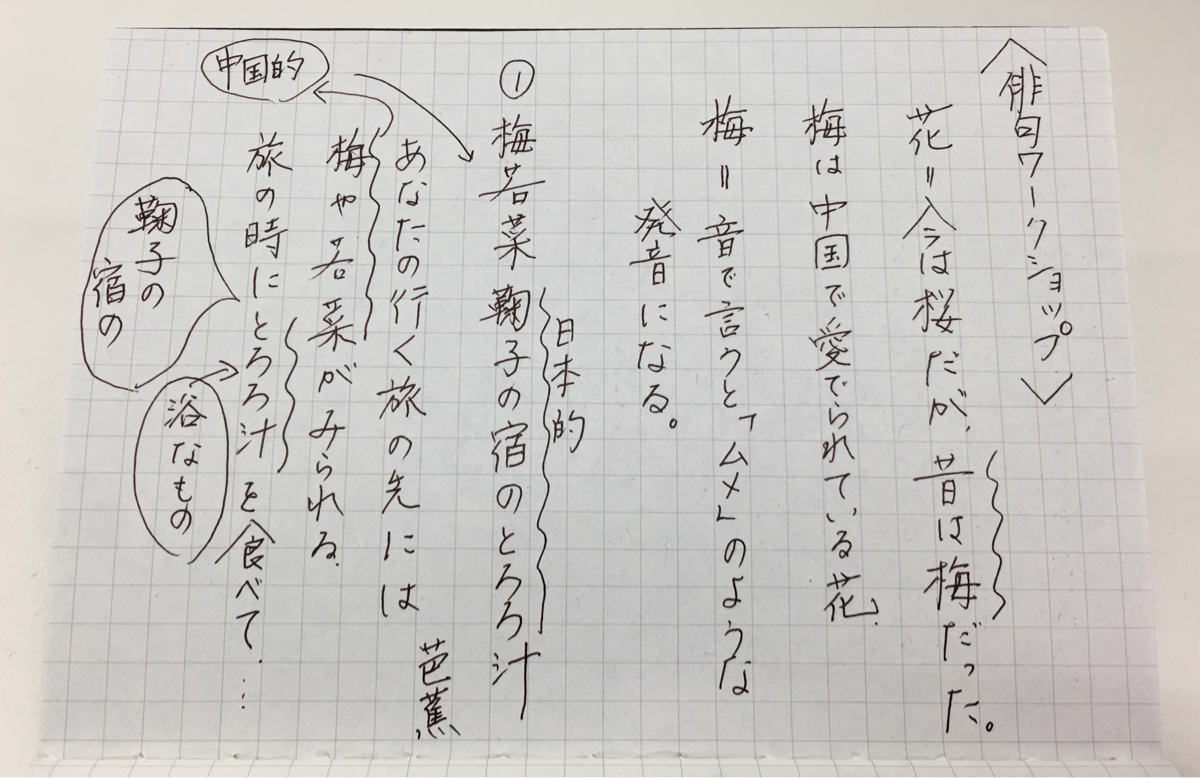 〈俳句ワークショップ〉
花＝今は桜だが、昔は梅だった。
梅は中国で愛でられている花。
梅＝音で言うと「ムメ」のような
発音になる。
日本的
①梅若菜鞠子の宿のとろろ汁
芭蕉
あなたの行く旅の先には
梅や若菜がみられる。
中国的
旅の時にとろろ汁を食べて…
鞠子の
宿の
浴なもの